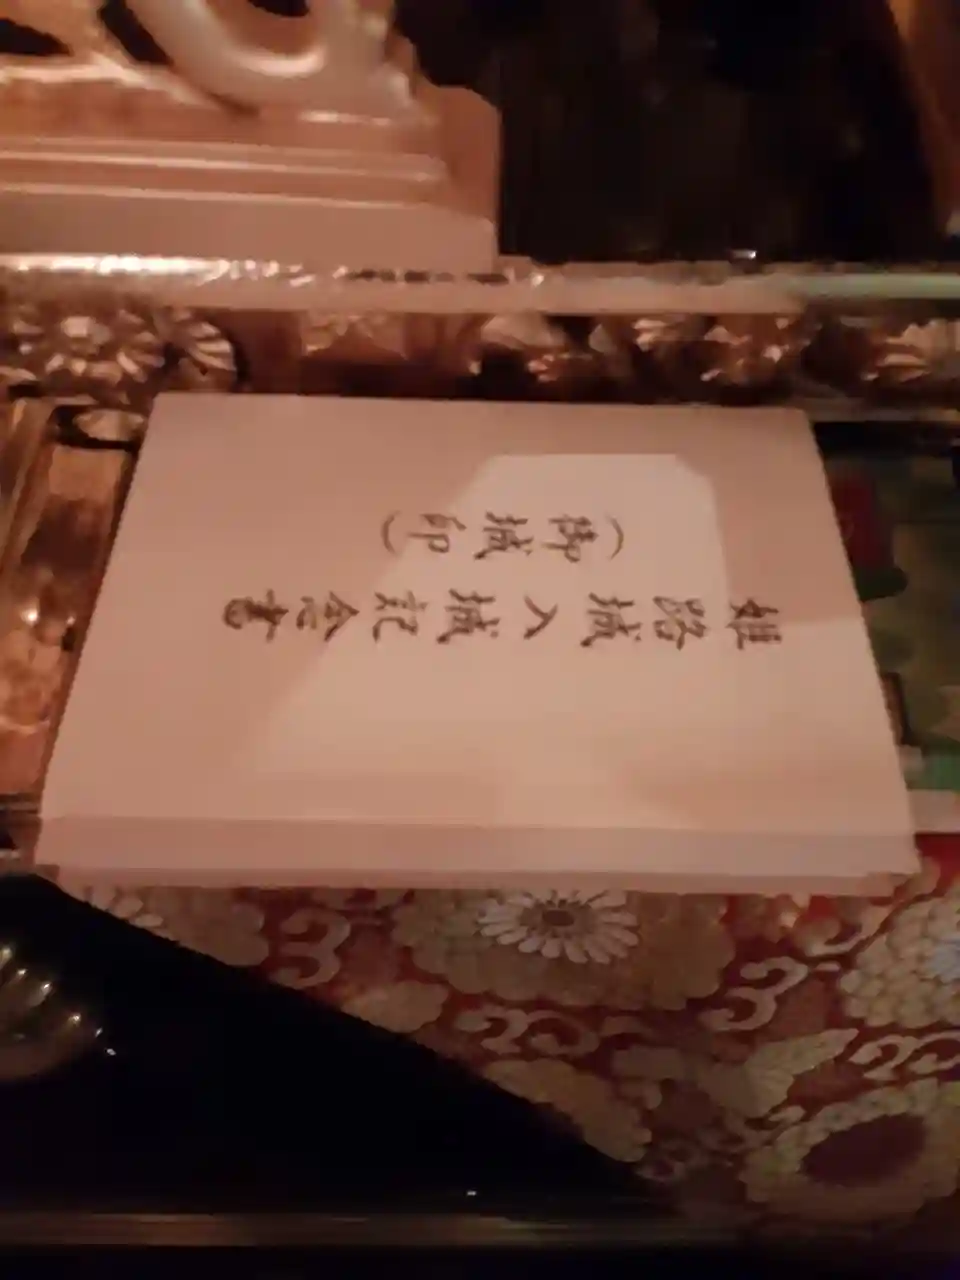 姫路城入城記念書
(御城印)